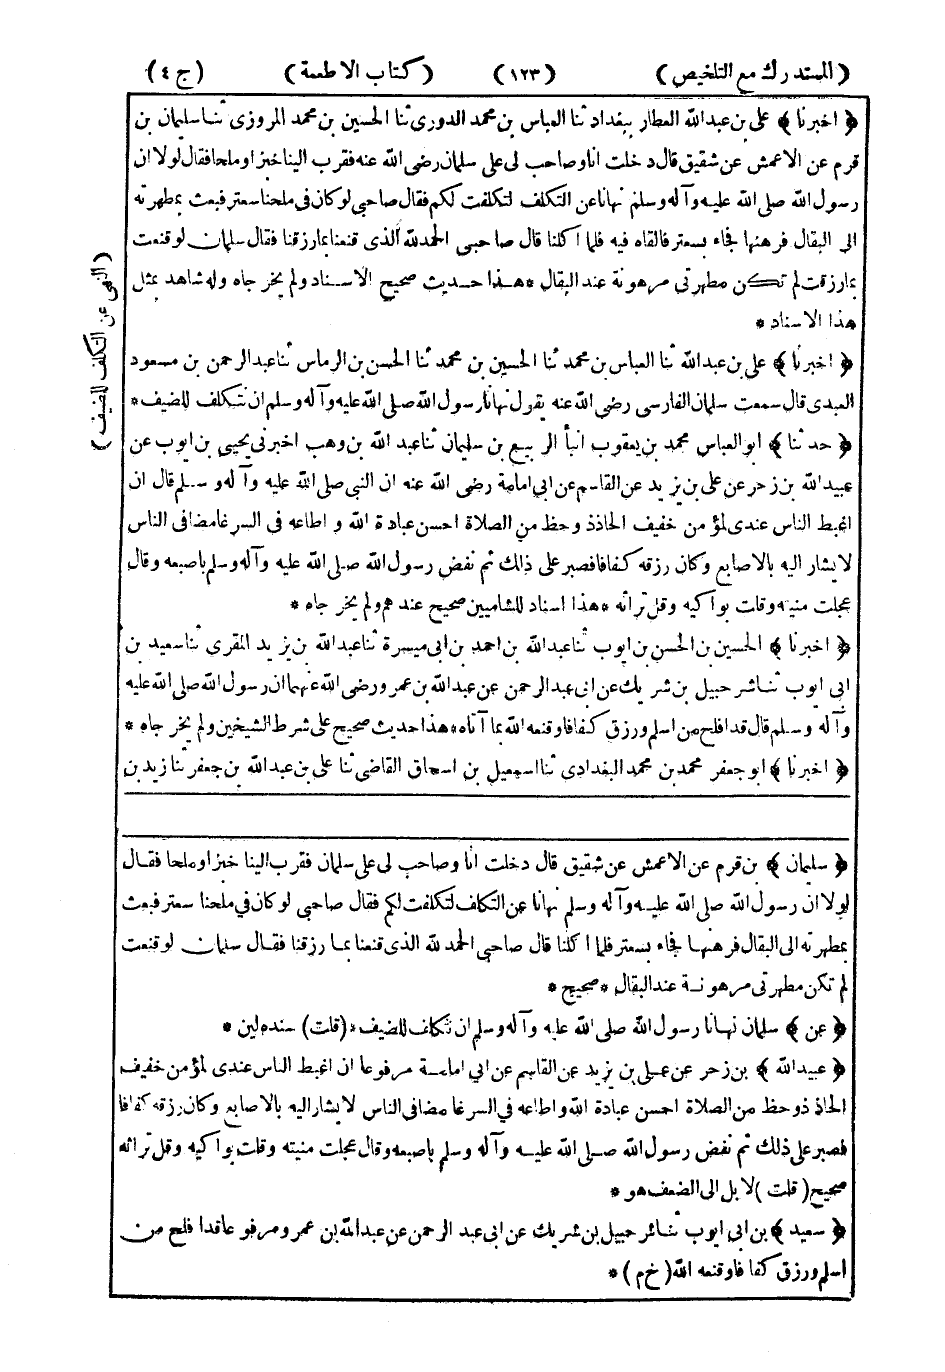 (المستدرك مع التلخيص) (١٢٣) (كتاب الاطعمة) (ج ٤)
﴿ اخبرنا ﴾ على بن عبدالله العطار ببغداد ثنا العباس بن محمد الدورى ثنا الحسين بن محمد المروزى ثنا سليمان بن
قرم عن الاعمش عن شقيق قال دخلت انا وصاحب لى على سلمان رضى الله عنه فقرب الينا خبزا وملحا فقال لولا ان
رسول الله صلى الله عليه وآله وسلم نهانا عن التكلف لتكلفت لكم فقال صاحبى لو كان فى ملحنا سعتر فبعث بمطهرته
الى البقال فرهنها فجاء بسعتر فالقاه فيه فلما اكلنا قال صاحبى الحمدلله الذى قنعنا بما رزقنا فقال سلمان لو قنعت
بما رزقت لم تكن مطهرتى مرهونة عند البقال * هذا حديث صحيح الاسناد ولم يخرجاه وله شاهد بمثل
هذا الاسناد *
﴿ اخبرنا ﴾ على بن عبدالله ثنا العباس بن محمد ثنا الحسين بن محمد ثنا الحسن بن الرماس ثنا عبدالرحمن بن مسعود
العبدى قال سمعت سلمان الفارسى رضى الله عنه يقول نهانا رسول الله صلى الله عليه وآله وسلم ان نتكلف للضيف *
﴿ حدثنا ﴾ ابو العباس محمد بن يعقوب انبأ الربيع بن سليمان ثنا عبد الله بن وهب اخبرنى يحيى بن ايوب عن
عبيدالله بن زحر عن على بن يزيد عن القاسم عن ابى امامة رضى الله عنه ان النبى صلى الله عليه وآله وسلم قال ان
اغبط الناس عندى لمؤمن خفيف الحاذ ذو حظ من الصلاة احسن عبادة الله و اطاعه فى السر غامضا فى الناس
لا يشار اليه بالاصابع وكان رزقه كفافا فصبر على ذلك ثم نفض رسول الله صلى الله عليه وآله وسلم باصبعه وقال
عجلت منيته وقلت بواكيه وقل تراثه * هذا اسناد للشاميين صحيح عندهم ولم يخرجاه *
﴿ اخبرنا ﴾ الحسين بن الحسن بن ايوب ثنا عبدالله بن احمد بن ابى ميسرة ثنا عبدالله بن يزيد المقرى ثنا سعيد بن
ابى ايوب ثنا شرحبيل بن شريك عن ابى عبدالرحمن عن عبدالله بن عمرو رضى الله عنهما ان رسول الله صلى الله عليه
وآله وسلم قال قد افلح من اسلم ورزق كفافا وقنعه الله بما آتاه * هذا حديث صحيح على شرط الشيخين ولم يخرجاه *
﴿ اخبرنا ﴾ ابو جعفر محمد بن محمد البغدادى ثنا اسمعيل بن اسحاق القاضى ثنا على بن عبدالله بن جعفر ثنا زيد بن
(النهى عن التكلف للضيف)
﴿ سليمان ﴾ بن قرم عن الاعمش عن شقيق قال دخلت انا وصاحب لى على سلمان فقرب الينا خبزا وملحا فقال
لولا ان رسول الله صلى الله عليه وآله وسلم نهانا عن التكلف لتكلفت لكم فقال صاحبى لو كان فى ملحنا سعتر فبعث
بمطهرته الى البقال فرهنها فجاء بسعتر فلما اكلنا قال صاحبى الحمد لله الذى قنعنا بما رزقنا فقال سلمان لو قنعت
لم تكن مطهرتى مرهونة عند البقال * صحيح *
﴿ عن ﴾ سلمان نهانا رسول الله صلى الله عليه وآله وسلم ان نتكلف للضيف * (قلت) سنده لين *
﴿ عبيدالله ﴾ بن زحر عن على بن يزيد عن القاسم عن ابى امامة مرفوعا ان اغبط الناس عندى لمؤمن خفيف
الحاذ ذو حظ من الصلاة احسن عبادة الله واطاعه فى السر غامضا فى الناس لا يشار اليه بالاصابع وكان رزقه كفافا
فصبر على ذلك ثم نفض رسول الله صلى الله عليه وآله وسلم باصبعه وقال عجلت منيته وقلت بواكيه وقل تراثه
صحيح (قلت) لا بل الى الضعف هو *
﴿ سعيد ﴾ بن ابى ايوب ثنا شرحبيل بن شريك عن ابى عبد الرحمن عن عبدالله بن عمرو مرفوعا قد افلح من
اسلم ورزق كفافا وقنعه الله (خ م) *